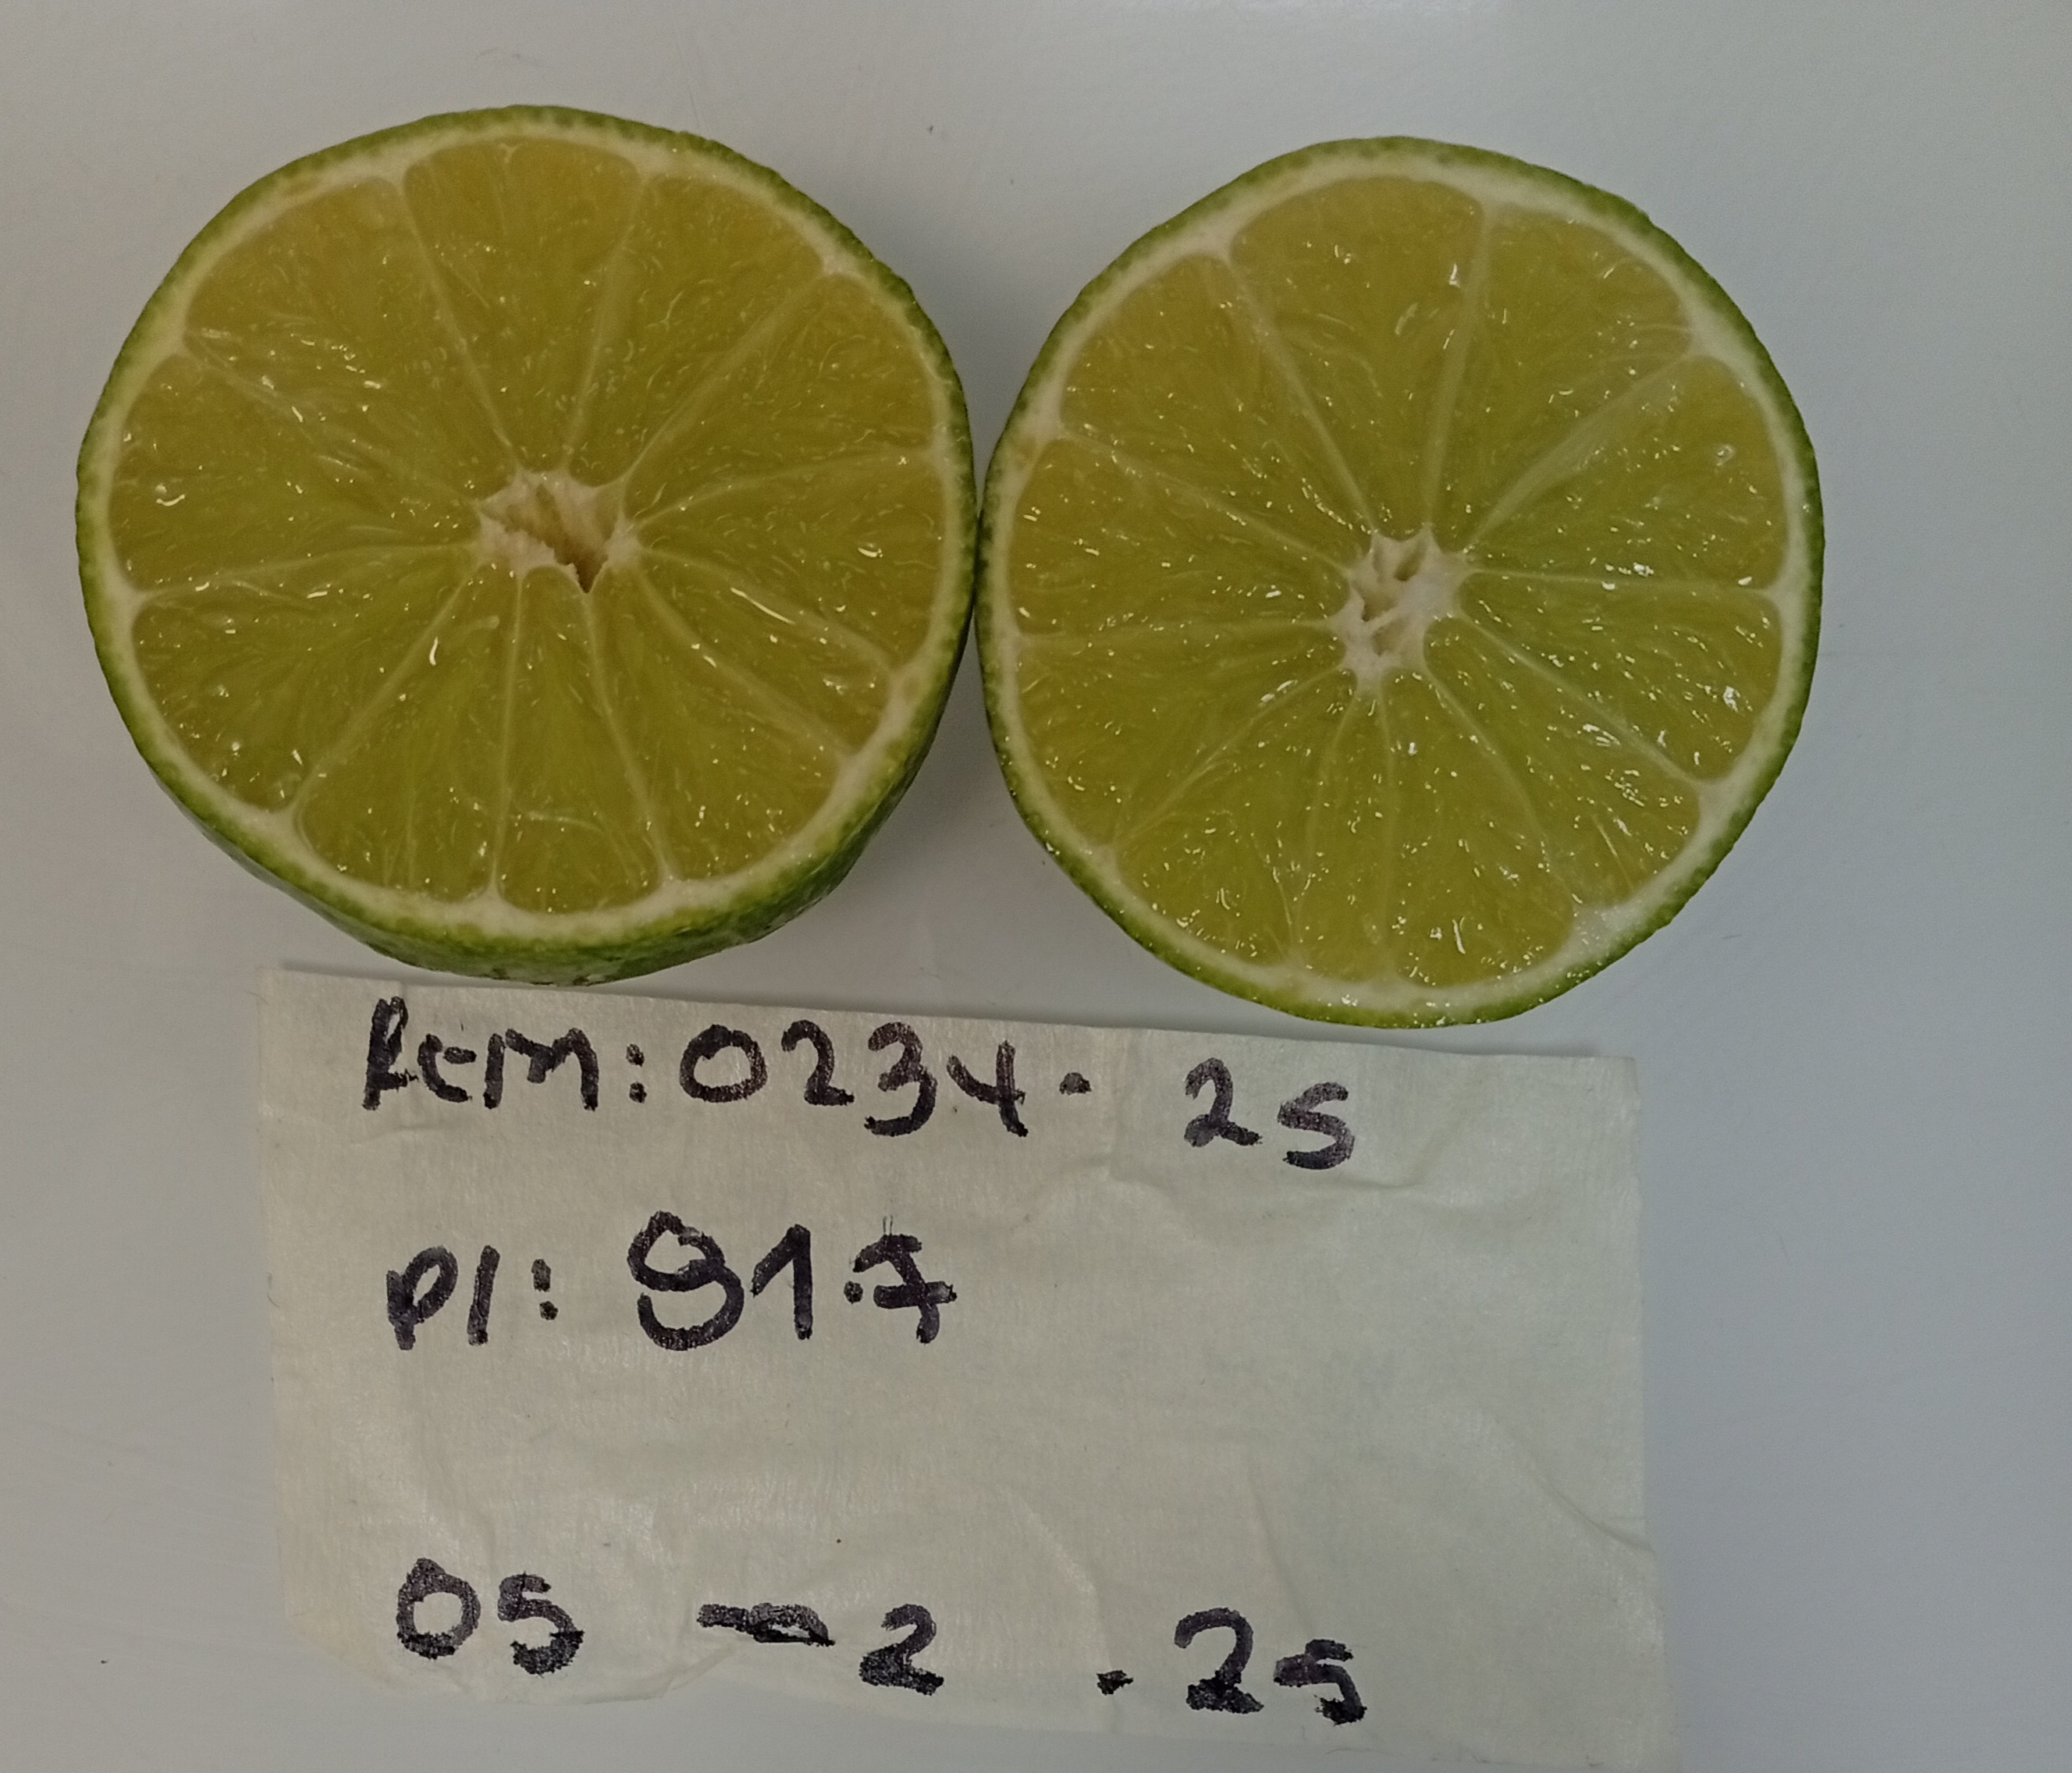 Rem: 0234- 25
pl: 91.7
05 - 2 . 25